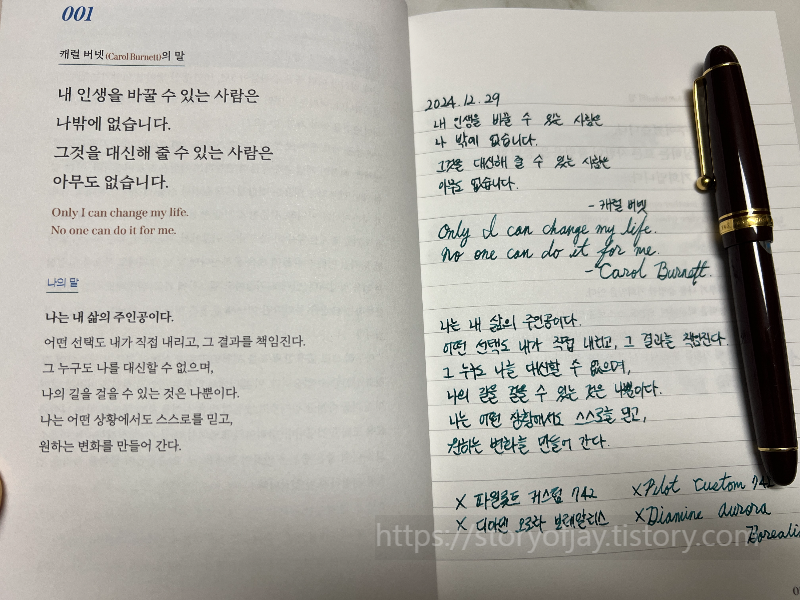 001
캐럴 버넷(Carol Burnett)의 말
내 인생을 바꿀 수 있는 사람은
나밖에 없습니다.
그것을 대신해 줄 수 있는 사람은
아무도 없습니다.
Only I can change my life.
No one can do it for me.
나의 말
나는 내 삶의 주인공이다.
어떤 선택도 내가 직접 내리고, 그 결과를 책임진다.
그 누구도 나를 대신할 수 없으며,
나의 길을 걸을 수 있는 것은 나뿐이다.
나는 어떤 상황에서도 스스로를 믿고,
원하는 변화를 만들어 간다.
2024.12.29
내 인생을 바꿀 수 있는 사람은
나 밖에 없습니다.
그것을 대신해 줄 수 있는 사람은
아무도 없습니다.
- 캐럴 버넷
Only I can change my life.
No one can do it for me.
- Carol Burnett.
나는 내 삶의 주인공이다.
어떤 선택도 내가 직접 내리고, 그 결과를 책임진다.
그 누구도 나를 대신할 수 없으며,
나의 길을 걸을 수 있는 것은 나뿐이다.
나는 어떤 상황에서도 스스로를 믿고,
원하는 변화를 만들어 간다.
X 파일롯트 커스텀 742
X Pilot Custom 742
X 디아민 오로라 보레알리스
X Diamine Aurora
Boreali
https://storyofjay.tistory.com/